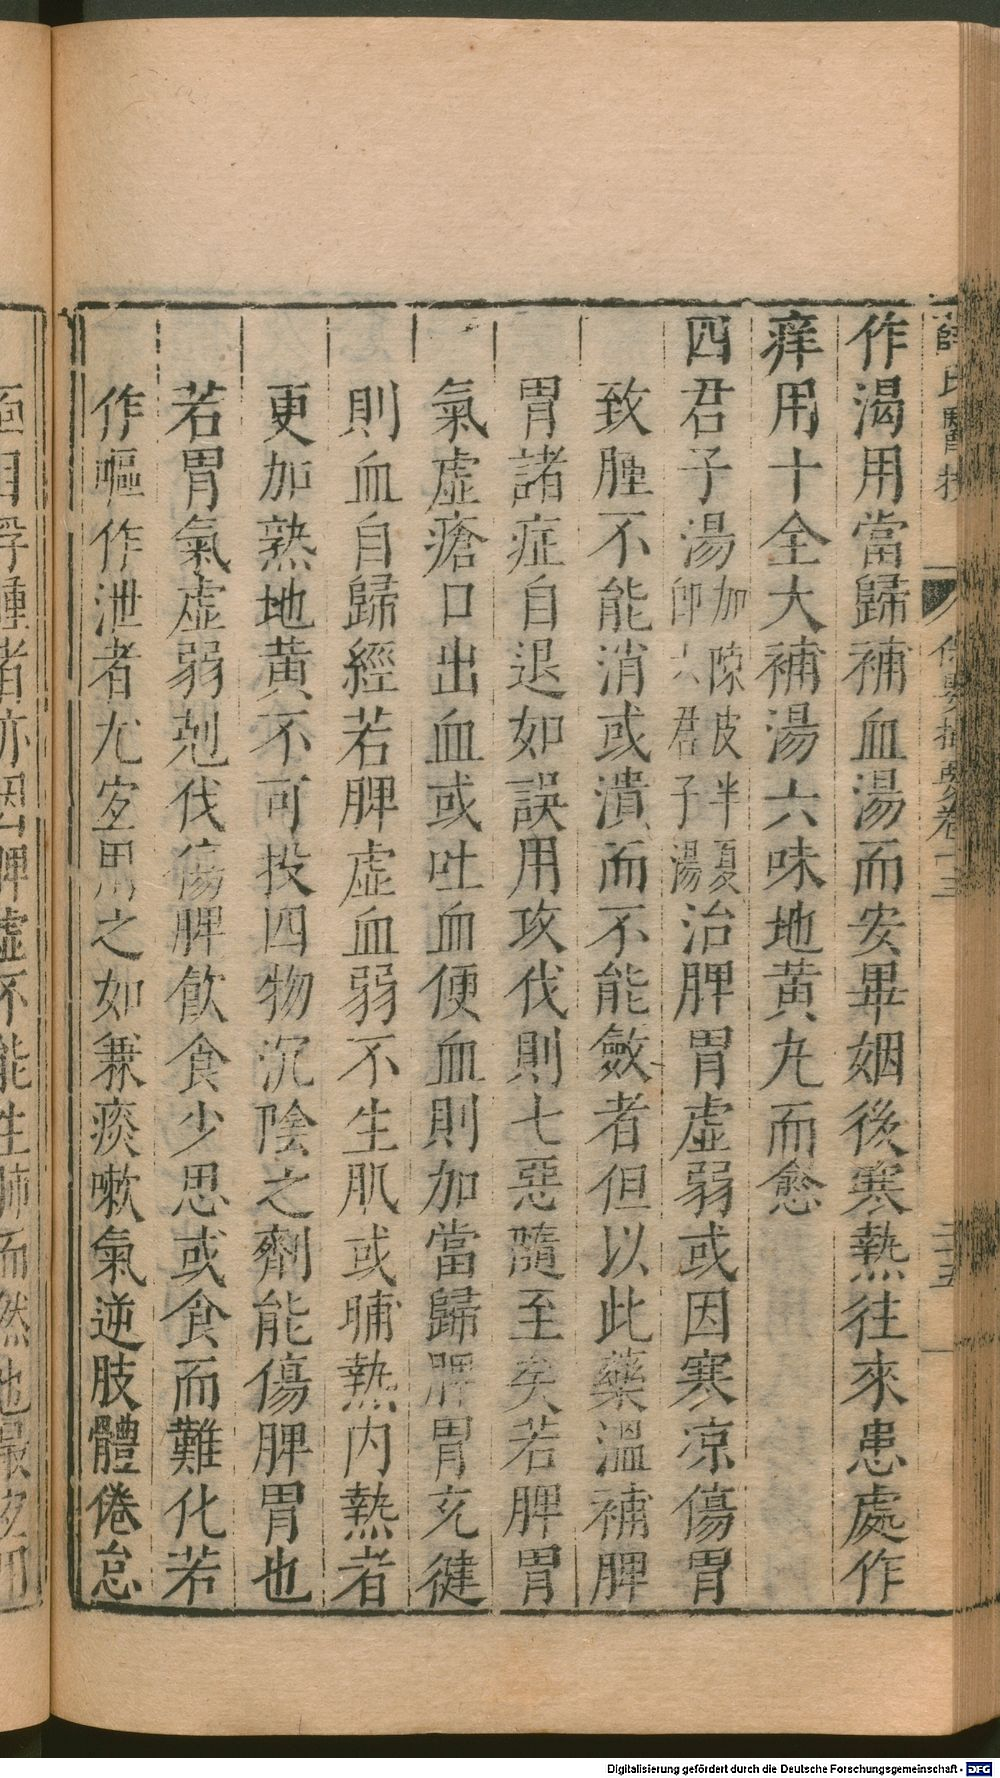 作渴用當歸補血湯而安畢姻後寒熱往來患處作
痒用十全大補湯六味地黄九而愈
四君子湯加陳皮半夏即六君子湯治脾胃虛弱或因寒凉傷胃
致腫不能消或潰而不能斂者但以此藥溫補脾
胃諸症自退如誤用攻伐則七惡隨至矣若脾胃
氣虛瘡口出血或吐血便血則加當歸脾胃充健
則血自歸經若脾虛血弱不生肌或晡熱内熱者
更加熟地黄不可投四物沉陰之劑能傷脾胃也
若胃氣虛弱剋伐傷脾飮食少思或食而難化若
作嘔作泄者尤宜用之如兼痰嗽氣逆肢體倦怠
面目浮腫者亦因脾虛不能生肺而然也最宜
薛氏醫按
卷十三
二十五
Digitalisierung gefördert durch die Deutsche Forschungsgemeinschaft - DFG